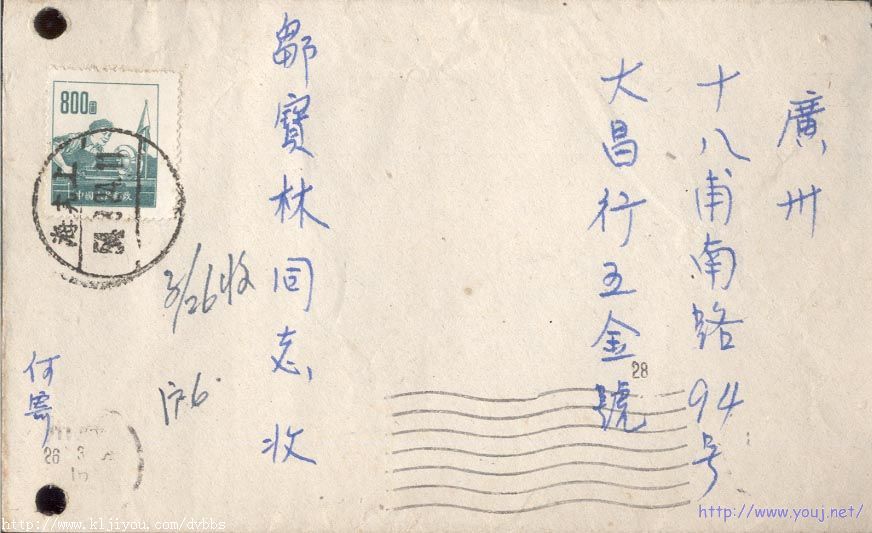 廣州
十八甫南路94号
大昌行五金號
鄒寶林同志收
3/26收
何寄
800圓
上海
28
26 3
http://www.kljiyou.com/dvbbs
http://www.youj.net/